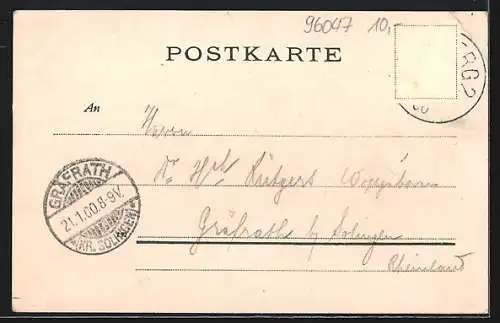 96047 10,-
POSTKARTE
RG 2
00
An
Herrn
Rütgers
Gräfrath by Solingen
Rheinland
GRÄFRATH
21.1.00.8-9V.
(KR. SOLINGEN)